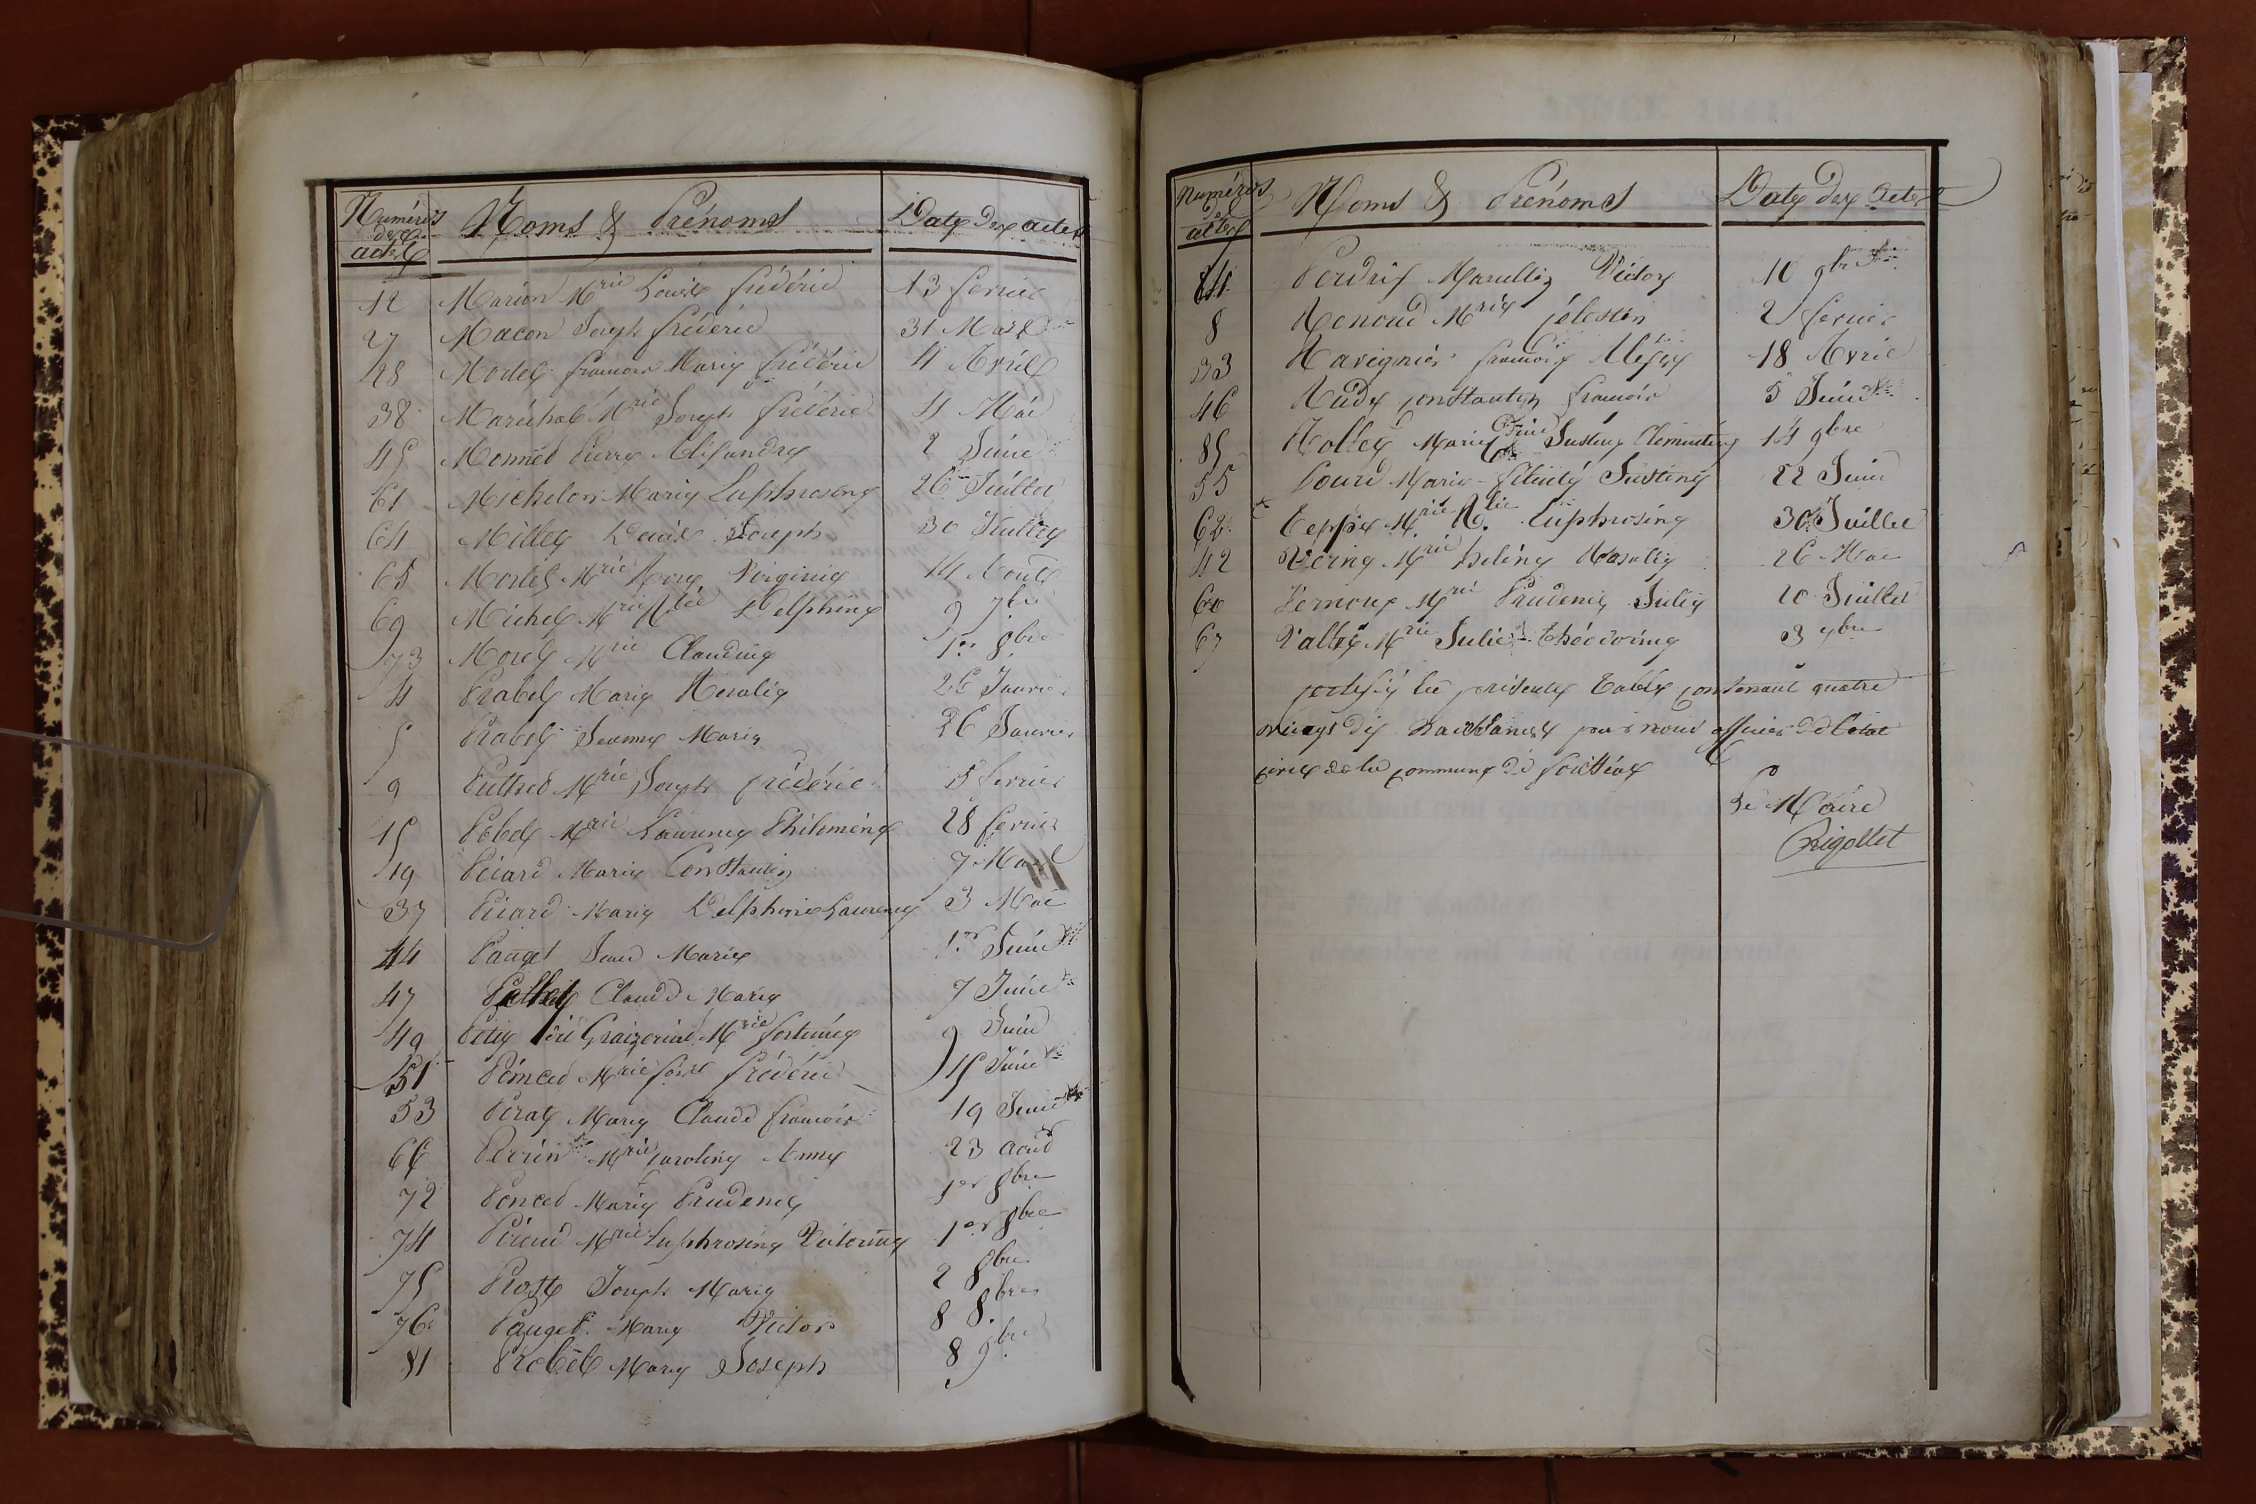 Numéros des actes Noms & Prénoms Date des actes
12 Marion Mrie Louise frédéric 13 fevrier
27 Macon Joseph frédéric 31 Mars
28 Mortel francois Marie frédéric 4 Avril
38 Maréchal Mrie Joseph frédéric 4 Mai
45 Monnet Pierre 2 Juin
61 Michelon Marie Euphrosine 26 Juillet
64 Millet Louise Joseph 30 Juillet
65 Mortel Mrie Rose Virginie 14 Aout
69 Michel Mrie Delphine 9 7bre
73 Morel Mrie Claudine 1er 8bre
4 Prabel Marie Rosalie 26 Janvier
5 Prabel Jeanne Marie 26 Janvier
9 Puthod Mrie Joseph frédéric 5 fevrier
15 Mrie Laurence Philomène 28 fevrier
19 Picard Marie Constantin 7 Mars
37 Picard Marie Delphine Laurence 3 Mai
44 Pauget Jean Marie 1er Juin
47 Claude Marie 7 Juin
49 Petit dit Mrie fortunée 9 Juin
51 Poncet Mrie frédéric 15 Juin
53 Perat Marie Claude francois 19 Juin
66 Perrin Mrie Caroline Anne 23 aout
72 Poncet Marie Prudence 1er 8bre
74 Mrie Euphrosine Victorine 1er 8bre
75 Prost Joseph Marie 2 8bre
76 Pauget Marie Victor 8 8bre
81 Prabel Marie Joseph 8 9bre
Numéros des actes Noms & Prénoms Date des actes
84 Perdrix Marcellin Victor 10 9bre
8 Renoud Mrie Célestin 2 fevrier
33 Ravignier francois 18 Avril
46 Rude Constantin francois 5 Juin
85 Rollet Marie Justine Clémentine 14 9bre
55 Marie felicité Justine 22 Juin
62 Mrie Euphrosine 30 Juillet
42 Mrie heline Rosalie 26 Mai
60 Vernoux Mrie Prudence Julie 20 Juillet
67 Mrie Julie théodorine 3 7bre
certifié la présente table contenant quatre
vingt dix naissances par nous officier de l'état
civil de la commune de foissiat
Le Maire
Rigollet